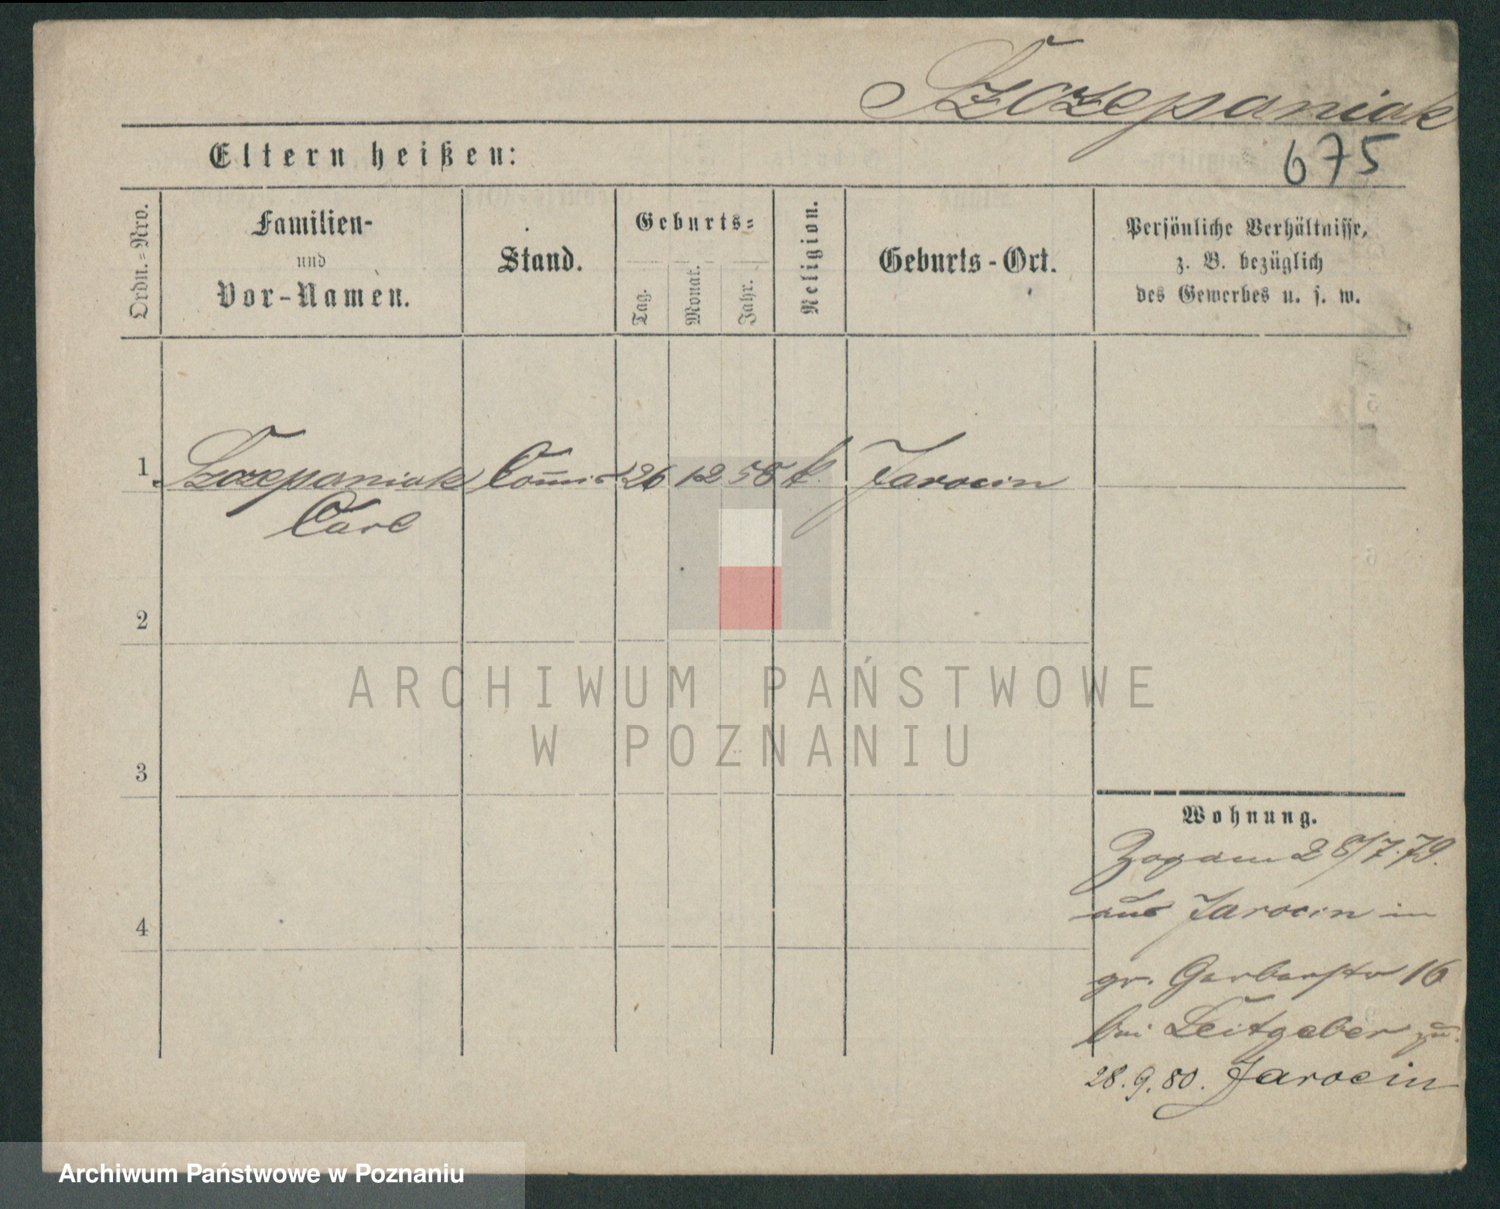 Szczepaniak
675
Eltern heißen:
Ordn.-Nro.
Familien-
und
Vor-Namen.
Stand.
Geburts-
Tag.
Monat.
Jahr.
Religion.
Geburts-Ort.
Persönliche Verhältnisse,
z. B. bezüglich
des Gewerbes u. s. w.
1 Szczepaniak Com̅is 26 12 58 k. Jarocin
Carl
2
3
4
ARCHIWUM PAŃSTWOWE
W POZNANIU
Wohnung.
Zog am 28/7. 79.
aus Jarocin in
gr. Gerberstr 16
bei Leitgeber zu.
28. 9. 80. Jarocin
Archiwum Państwowe w Poznaniu